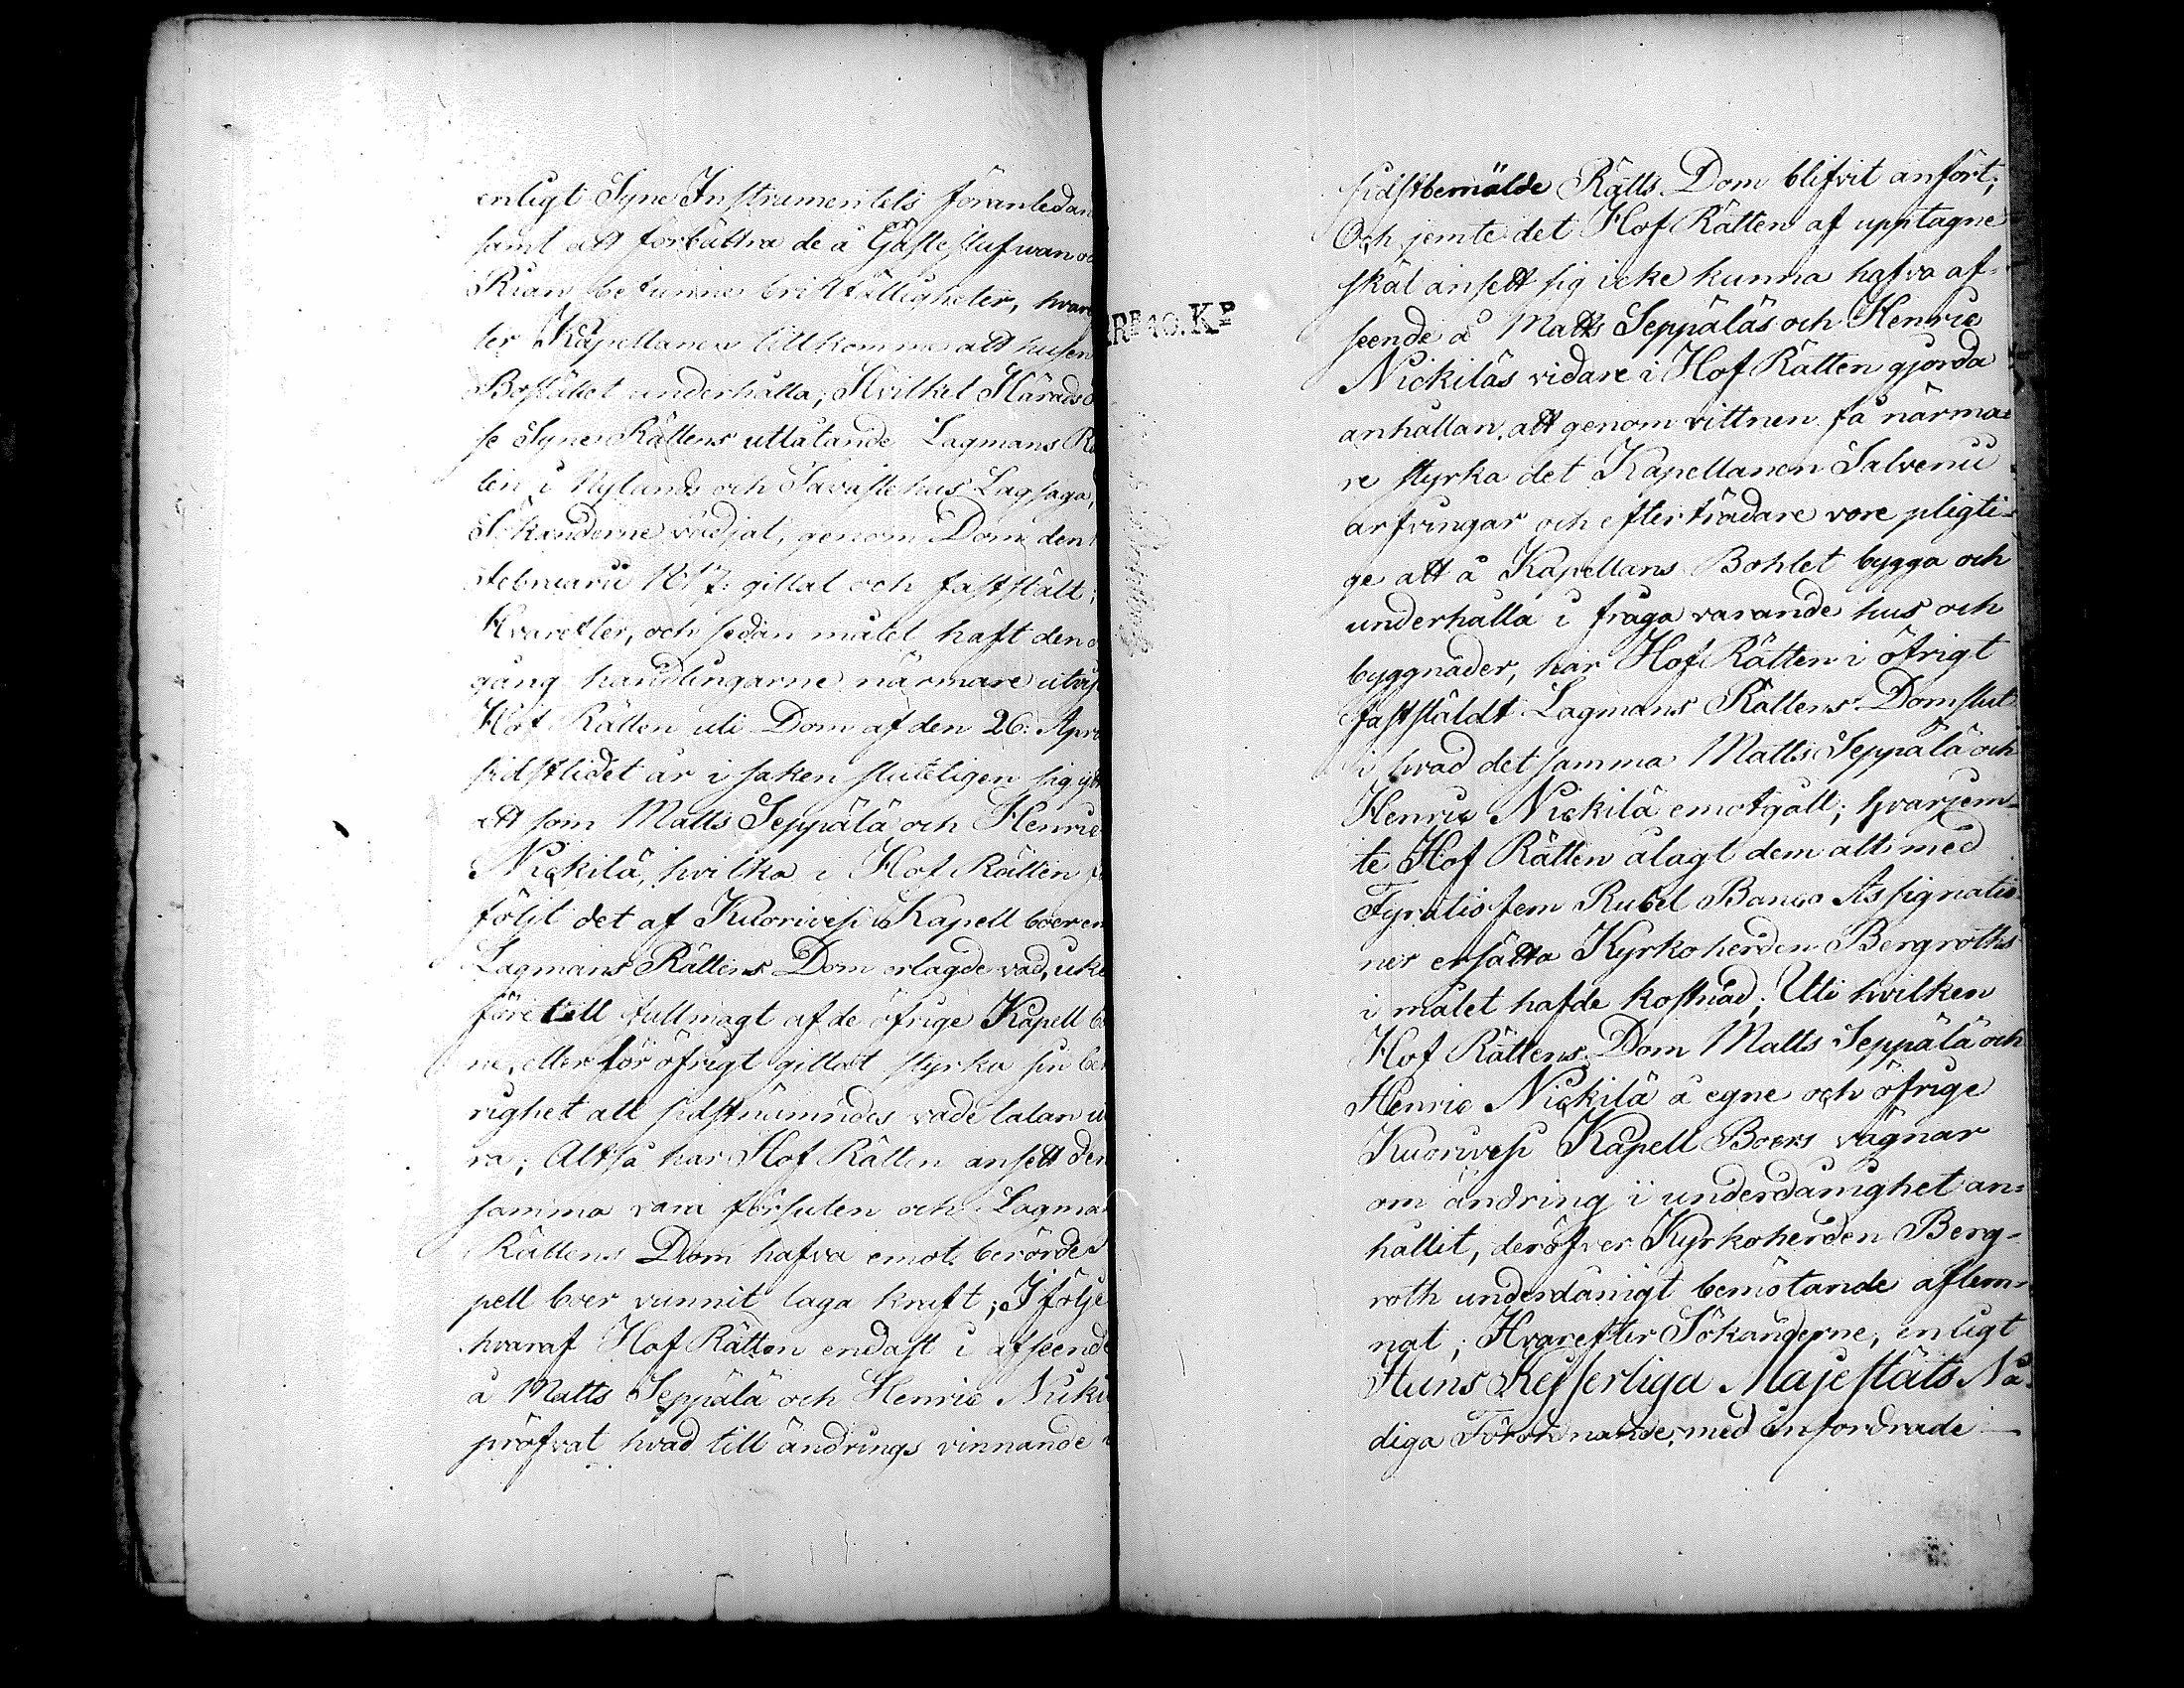 enligt Syne Instrumentets föranledan
samt att förbättra de å Gästestufwan oc
Rian befunne bristfälligheter, hvar
ler Kapellanen tillkomme att husen
Bostället underhålla; Hvilket Härads
se Syne Rättens utlåtande Lagmans Rä
ten i Nylands och Tavastehus Lagsaga,
Sökanderne vädjat, genom Dom den
Februarii 1817. gillat och fastställt;
Hvarefter, och sedan målet haft den
gång handlingarne närmare utvis
Hof Rätten uti Dom af den 26. Apri
sidstlidet år i saken sluteligen sig ytt
att som Matts Seppälä och Henric
Nickilä, hvilka i Hof Rätten
följt det af Kuorivesi Kapell boer em
Lagmans Rättens Dom erlagde vad, icke
företett fullmagt af de öfrige Kapell bo
ne, eller för öfrigt gittat styrka sin be
righet att sidstnämndes vade talan u
ra; Altså har Hof Rätten ansett den
samma vara försuten och Lagma
Rättens Dom hafva emot berörde
pell boer vunnit laga kraft; I följe
hvaraf Hof Rätten endast i afseende
å Matts Seppälä och Henric Nicki
pröfvat hvad till ändrings vinnande
RB 10. KP
sidstbemälde Rätts Dom blifvit anfört;
Och jemte det Hof Rätten af upptagne
skäl ansett sig icke kunna hafva af-
seende å Matts Seppäläs och Henric
Nickiläs vidare i Hof Rätten gjorda
anhållan, att genom vittnen få närma-
re styrka det Kapellanen Salvenii
arfvingar och efterträdare vore pligti-
ge att å Kapellans Bohlet bygga och
underhålla i fråga varande hus och
byggnader, har Hof Rätten i öfrigt
fastställdt Lagmans Rättens Domslut
i hvad det samma Matts Seppälä och
Henric Nickilä emotgått; hvarjem-
te Hof Rätten ålagt dem att med
Fyratio fem Rubel Banco Assignatio-
ner ersätta Kyrkoherden Bergroths
i målet hafde kostnad; Uti hvilken
Hof Rättens Dom Matts Seppälä och
Henric Nickilä å egne och öfrige
Kuorivesi Kapell Boers vägnar
om ändring i underdånighet an-
hållit, deröfver Kyrkoherden Berg-
roth underdånigt bemötande aflem-
nat; Hvarefter Sökanderne, enligt
Hans Kejserliga Majestäts Nå-
diga Förordnande, med infordrade